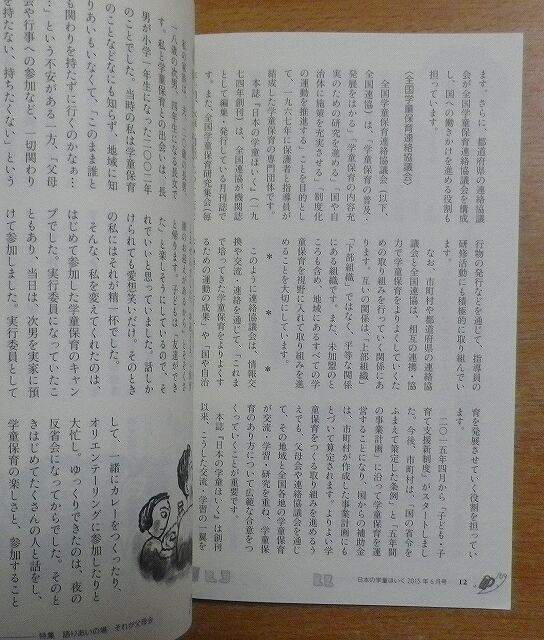 ます。さらに、都道府県の連絡協議
会が全国学童保育連絡協議会を構成
し、国への働きかけを進める役割も
担っています。
〈全国学童保育連絡協議会〉
全国学童保育連絡協議会（以下、
全国連協）は、「学童保育の普及・
発展をはかる」「学童保育の内容充
実のための研究を進める」「国や自
治体に施策を充実させる」「制度化
の運動を推進する」ことを目的とし
て、一九六七年に保護者と指導員が
結成した学童保育の専門団体です。
本誌『日本の学童ほいく』（一九
七四年創刊）は、全国連協が機関誌
として編集・発行している月刊誌で
す。また、全国学童保育研究集会（毎
行物の発行などを通じて、指導員の
研修活動にも積極的に取り組んでい
ます。
なお、市町村や都道府県の連絡協
議会と全国連協は、相互の連携・協
力で学童保育をよりよくしていくた
めの取り組みを行っていく関係にあ
ります。互いの関係は、「上部組織」
「下部組織」ではなく、平等な関係
にある組織です。また、未加盟のと
ころも含め、地域にあるすべての学
童保育を視野に入れて取り組みを進
めることを大切にしています。
＊ ＊ ＊
このように連絡協議会は、情報交
換や交流、連絡を通じて、「これま
で培ってきた学童保育をよりよくす
るための運動の成果」や「国や自治
育を発展させていく役割を担ってい
ます。
二〇一五年四月から「子ども・子
育て支援新制度」がスタートしまし
た。今後、市町村は、「国の省令を
ふまえて策定した条例」と「五年間
の事業計画」に沿って学童保育を運
営することになり、国からの補助金
は、市町村が作成した事業計画にも
とづいて算定されます。よりよい学
童保育をつくる取り組みを進めるう
えでも、父母会や連絡協議会を通じ
て、その地域と全国各地の学童保育
が交流・学習・研究を重ね、学童保
育のあり方について広範な合意をつ
くっていくことが重要です。
本誌『日本の学童ほいく』は創刊
以来、こうした交流・学習の一翼を
日本の学童ほいく 2015年6月号 12
八歳の次男、四年生になる長女で
す。私と学童保育との出会いは、長
男が小学一年生になった二〇〇二年
のことでした。当時の私は学童保育
のことなどなにも知らず、地域に知
りあいもいなくて、「このまま誰と
も関わりを持たずに行くのかなぁ…
…」という不安がある一方、「父母
会や行事への参加など、一切関わり
を持たない、持ちたくない」という
と帰ります。子どもは「友達ができ
た」と楽しそうにしているので、そ
れでいいと思っていました。話しか
けられても愛想笑いだけ。そのとき
の私にはそれが精一杯でした。
そんな、私を変えてくれたのは、
はじめて参加した学童保育のキャン
プでした。実行委員になっていたこ
ともあり、当日は、次男を実家に預
けて参加しました。実行委員として
して、一緒にカレーをつくったり、
オリエンテーリングに参加したりと
大忙し。ゆっくりできたのは、夜の
反省会になってからでした。そのと
きはじめてたくさんの人と話をし、
学童保育の楽しさと、参加すること
特集 語りあいの場 それが父母会